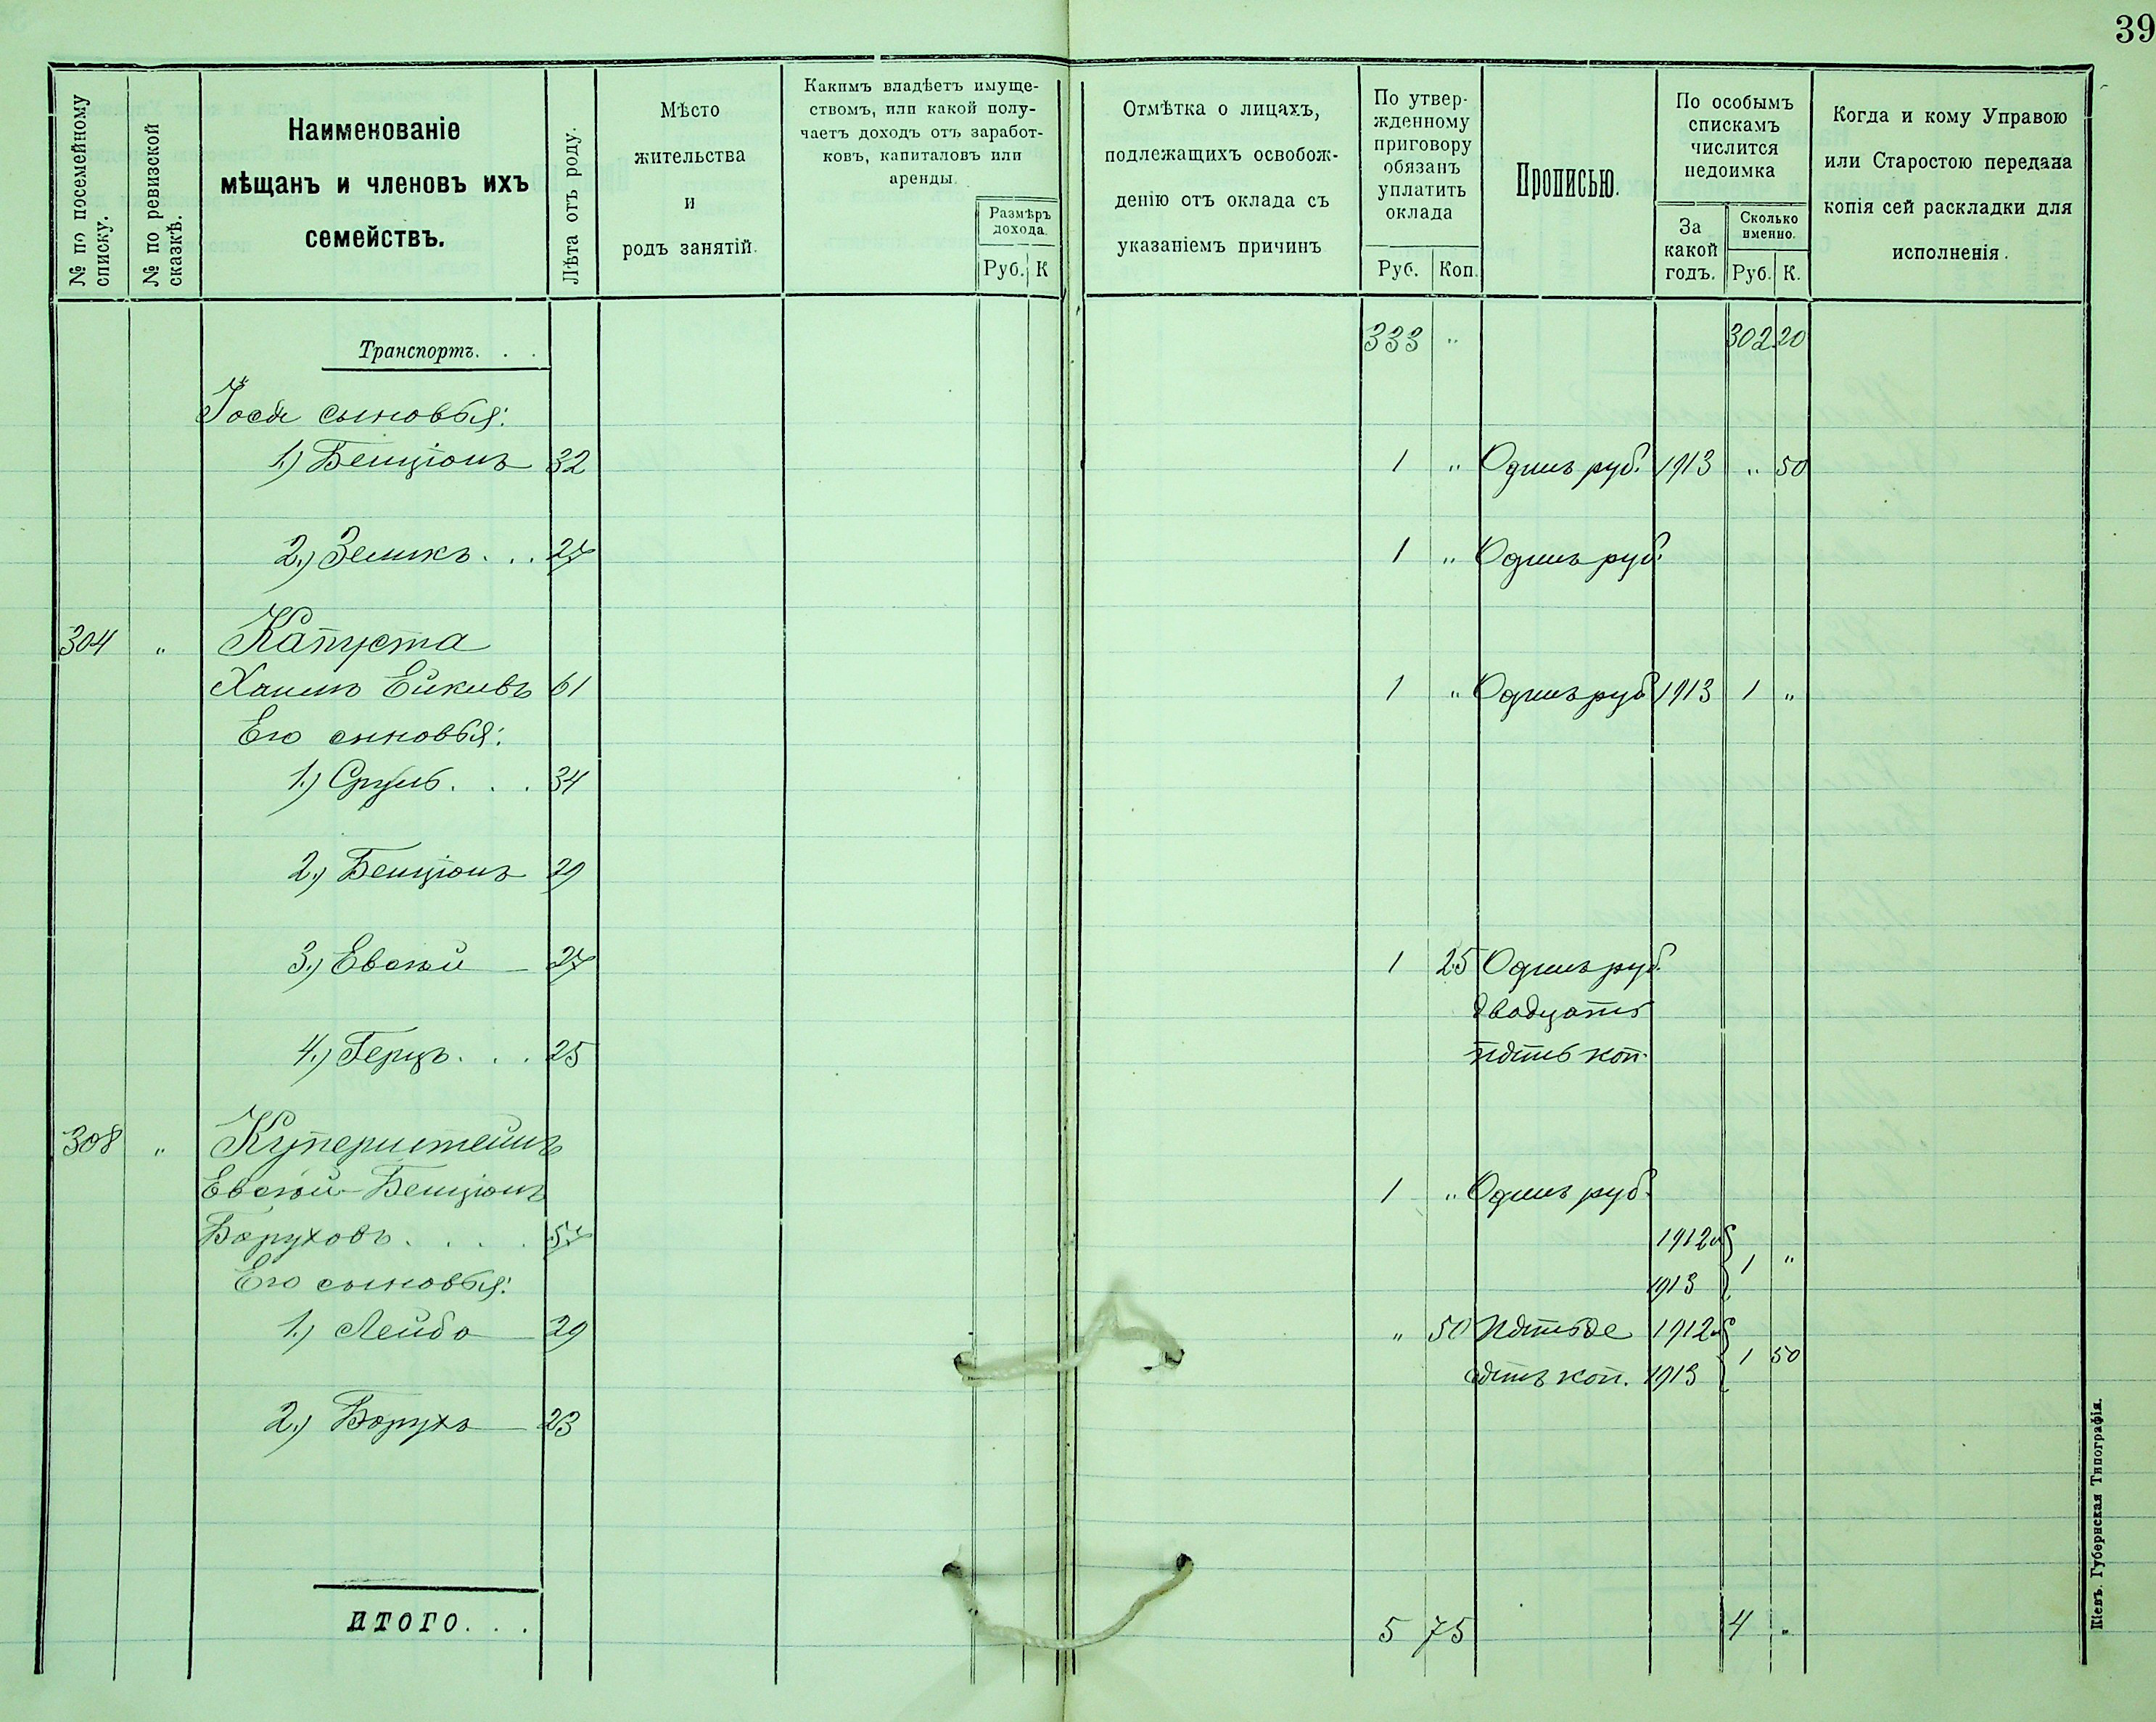 39
№ по посемейному списку.
№ по ревизской сказкѣ.
Наименованіе
мѣщанъ и членовъ ихъ
семействъ.
Лѣта отъ роду.
Мѣсто
жительства
и
родъ занятій.
Какимъ владѣетъ имуще-
ствомъ, или какой полу-
чаетъ доходъ отъ заработ-
ковъ, капиталовъ или
аренды.
Размѣръ
дохода.
Руб. К
Отмѣтка о лицахъ,
подлежащихъ освобож-
денію отъ оклада съ
указаніемъ причинъ
По утвер-
жденному
приговору
обязанъ
уплатить
оклада
Руб. Коп.
Прописью.
По особымъ
спискамъ
числится
недоимка
За
какой
годъ.
Сколько
именно.
Руб. К.
Когда и кому Управою
или Старостою передана
копія сей раскладки для
исполненія.
Транспортъ. . . 333 " 302 20
Іося сыновья:
1.) Бенціонъ 32 1 " Одинъ руб. 1913 " 50
2.) Зеликъ . . . 27 1 " Одинъ руб.
304 " Капуста
Хаимъ Ейкивъ 61 1 " Одинъ руб 1913 1 "
Его сыновья:
1.) Сруль . . . 34
2.) Бенціонъ 29
3.) Евсѣй 27 1 25 Одинъ руб.
двадцать
4.) Герцъ . . . 25 пять коп.
308 " Куперштейнъ
Евсѣй-Бенціонъ 1 " Одинъ руб.
Боруховъ . . . . 57 1912 и
Его сыновья: 1913 1 "
1.) Лейба 29 " 50 Пятьде 1912 и
сятъ коп. 1913 1 50
2.) Борухъ 23
ИТОГО. . . 5 75 4 "
Кіевъ. Губернская Типографія.